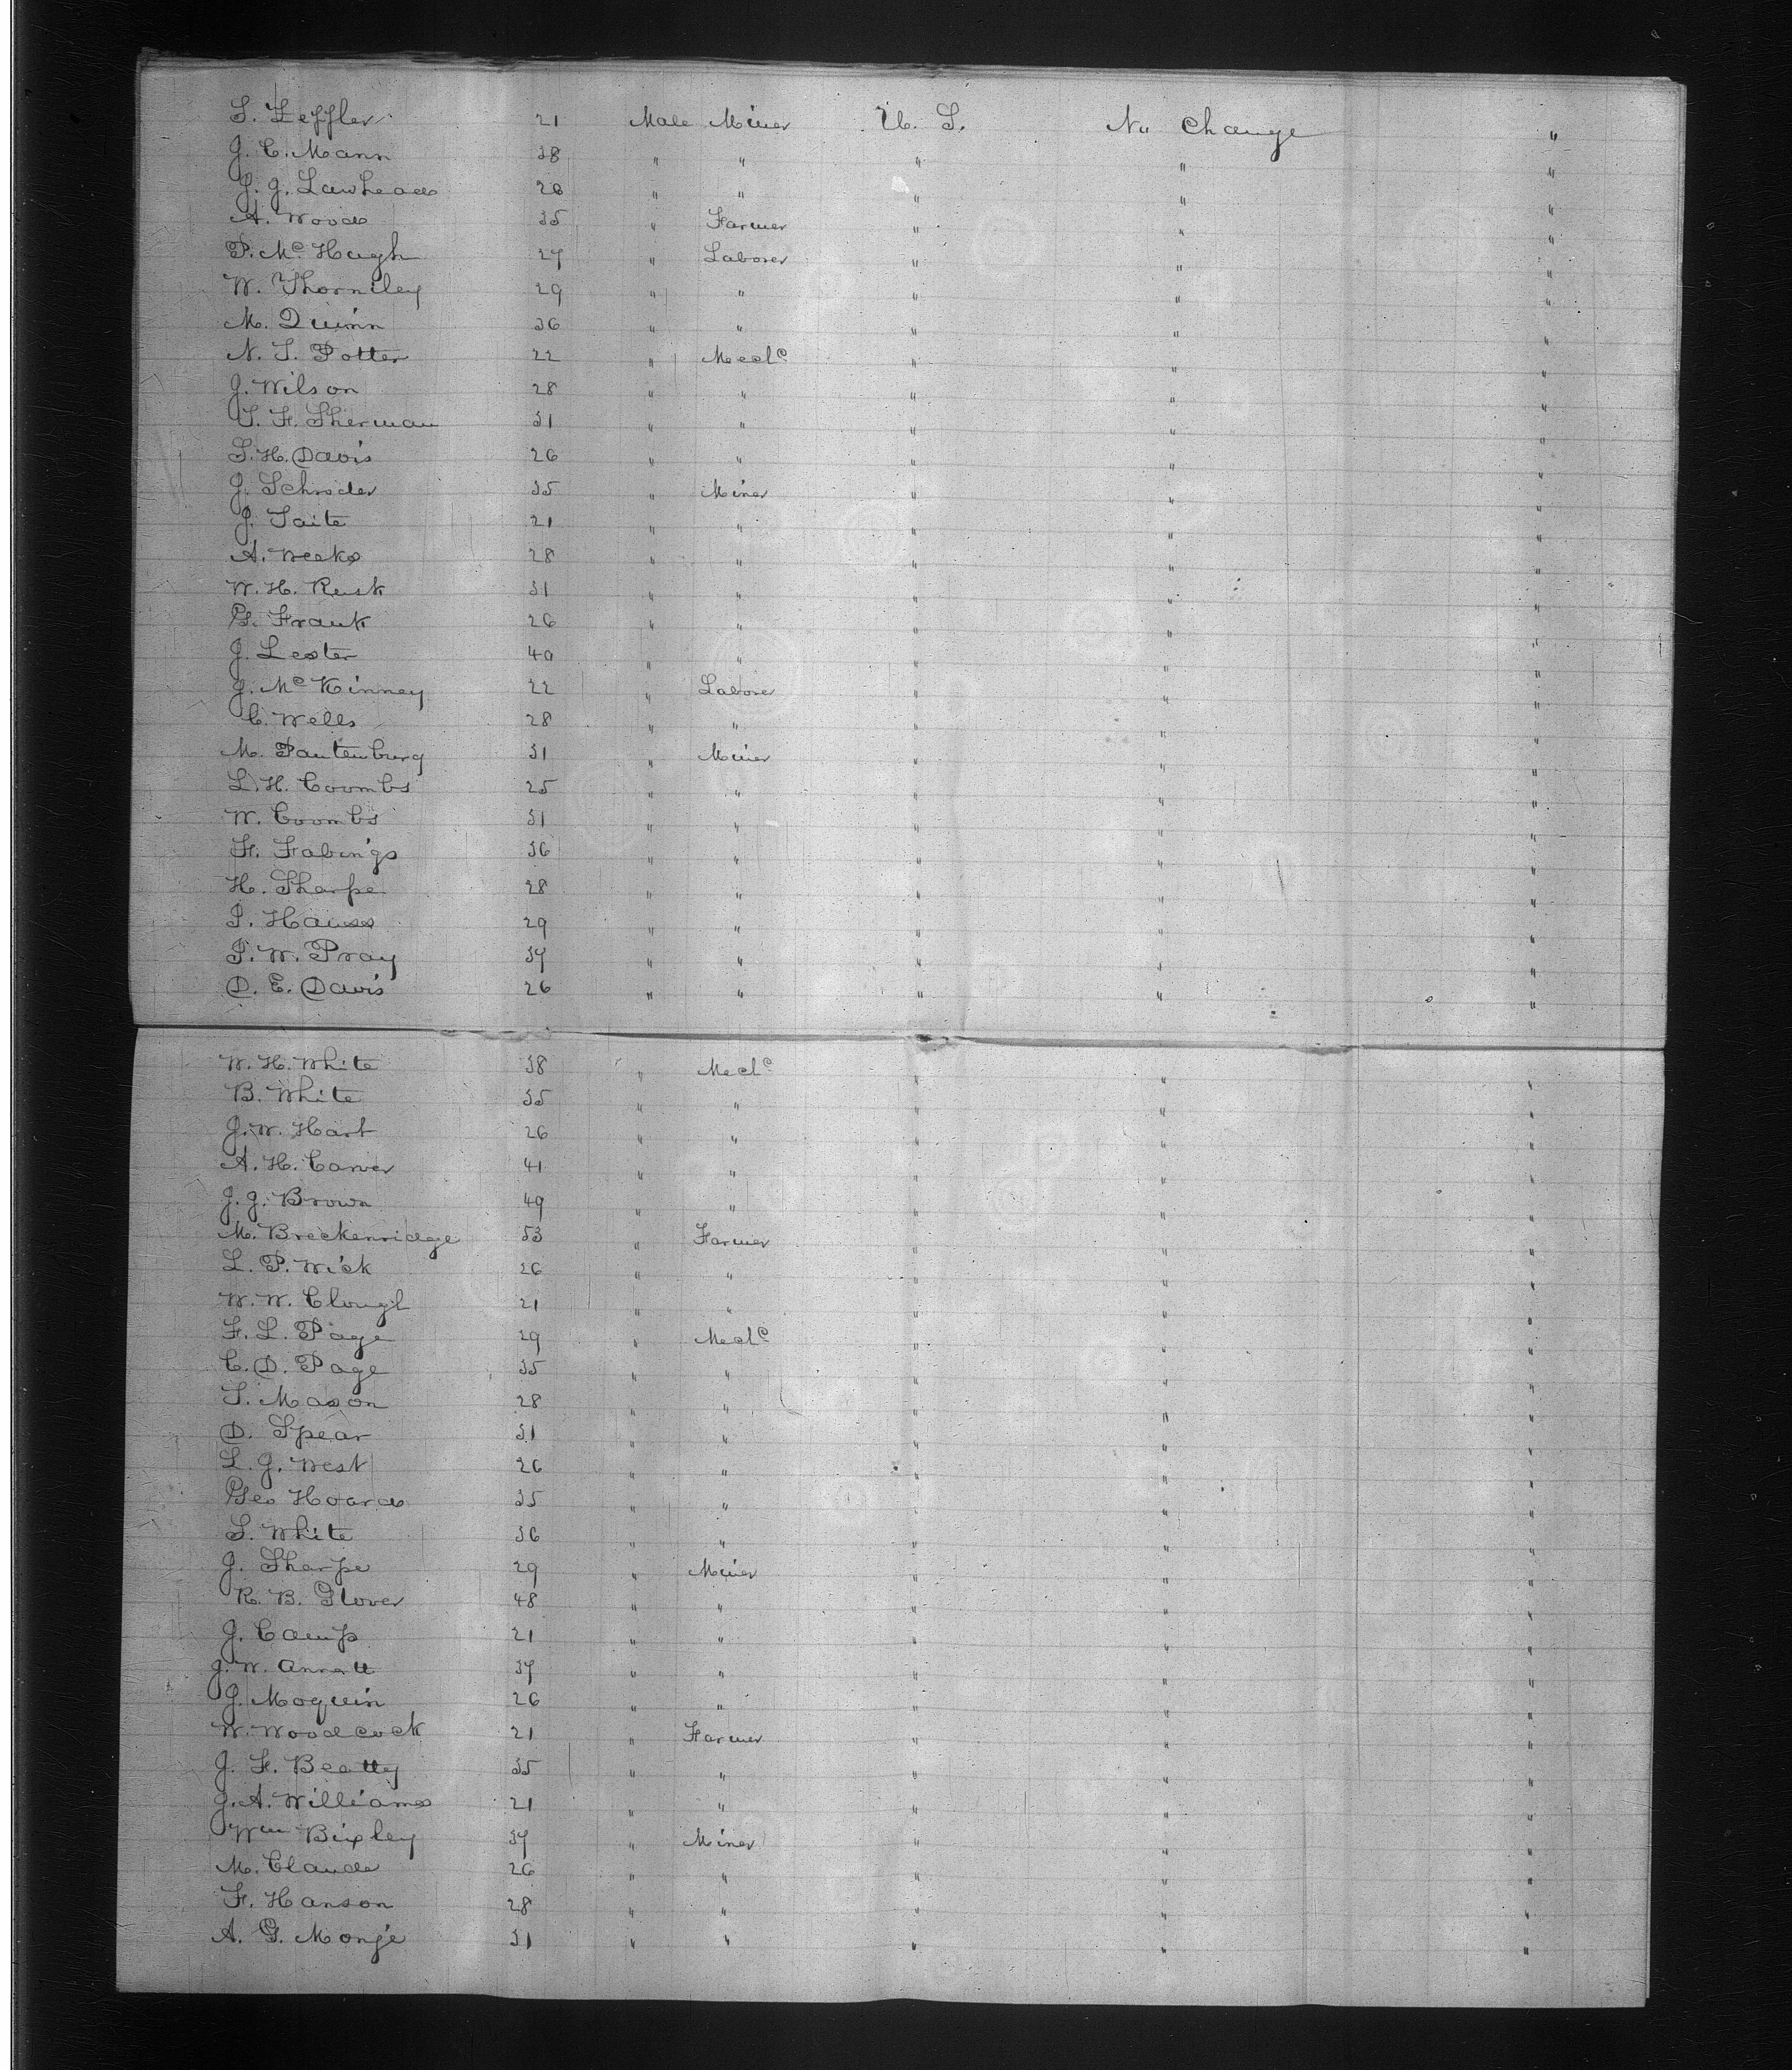 S. Leffler 21 Male Miner U. S. No Change "
J. C. Mann 38 " " " " "
J. J. Lawhead 26 " " " " "
A. Wood 35 " Farmer " " "
P. Mc Hugh 27 " Laborer " " "
W. Thorniley 29 " " " " "
M. Quinn 36 " " " " "
N. S. Potter 22 " Mechc " " "
J. Wilson 28 " " " " "
T. F. Sherman 31 " " " " "
S. H. Davis 26 " " " " "
J. Schroder 35 " Miner " " "
J. Taite 21 " " " " "
A. Weeks 28 " " " " "
W. H. Rusk 31 " " " " "
G. Frank 26 " " " " "
J. Lester 40 " " " " "
J. Mc Kinney 22 " Laborer " " "
C. Wells 28 " " " " "
M. Pautenburg 31 " Miner " " "
L. H. Coombs 25 " " " " "
W. Coombs 31 " " " " "
F. Fabings 36 " " " " "
H. Sharpe 28 " " " " "
P. Hauss 29 " " " " "
P. W. Pray 37 " " " " "
D. E. Davis 26 " " " " "
W. H. White 38 " Mechc " " "
B. White 35 " " " " "
J. W. Hart 26 " " " " "
A. H. Carver 41 " " " " "
J. J. Brown 49 " " " " "
M. Breckenridge 53 " Farmer " " "
L. P. Wick 26 " " " " "
W. W. Clough 21 " " " " "
F. L. Page 29 " Mechc " " "
C. D. Page 35 " " " " "
T. Mason 28 " " " " "
D. Spear 31 " " " " "
L. J. West 26 " " " " "
Geo Hoard 35 " " " " "
S. White 36 " " " " "
J. Sharpe 29 " Miner " " "
R. B. Glover 48 " " " " "
J. Camp 21 " " " " "
J. W. Annett 37 " " " " "
J. Moquin 26 " " " " "
W. Woodcock 21 " Farmer " " "
J. F. Beatty 35 " " " " "
J. A. Williams 21 " " " " "
Wm Bixley 37 " Miner " " "
M. Claude 26 " " " " "
F. Hanson 28 " " " " "
A. G. Monje 31 " " " " "